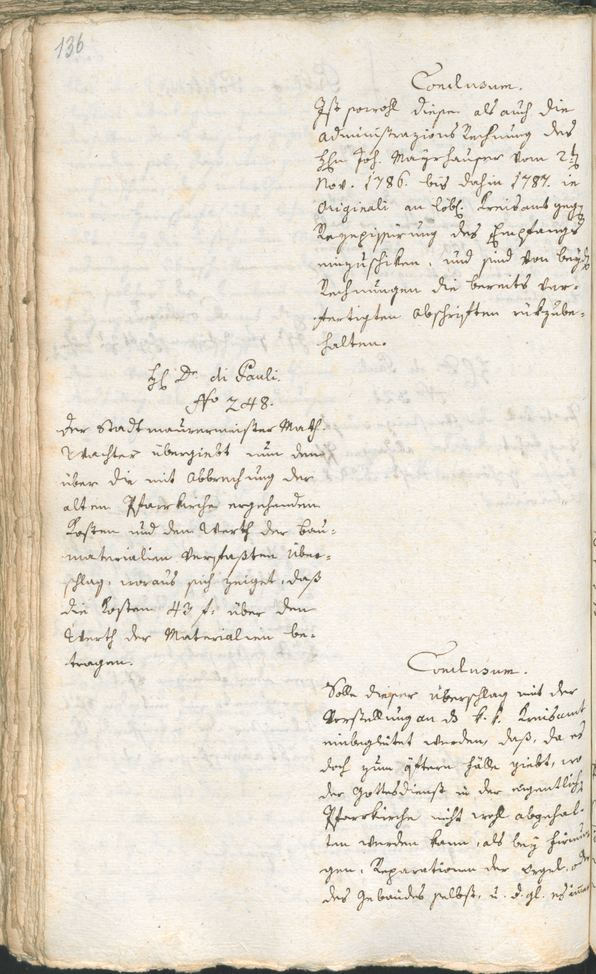 136
Conclusum.
Ist sowohl diese als auch die
Administrazions Rechnung des
Hhn Joh. Mayrhauser vom 2t
Nov. 1786. bis dahin 1787. in
Originali an löbl. Kreisamt geg
Rezepissirung des Empfangs
einzuschiken, und sind von beyd
Rechnungen die bereits ver-
fertigten Abschriften rükzube-
halten.
H. Dr. di Pauli.
No 248.
Der Stadtmaurermeister Math.
Wachter übergiebt nun den
über die mit Abbrechung der
alten Pfarrkirche ergehenden
Kosten und den Werth der Bau-
materialien verfaßten Über-
schlag, woraus sich zeiget, daß
die Kosten 43 f. über den
Werth der Materialien be-
tragen.
Conclusum.
Solle dieser Überschlag mit der
Vorstellung an ds k. k. Kreisamt
einbegleitet werden, daß, da es
doch zum öftern Fälle giebt, wo
der Gottesdienst in der eigentlich
Pfarrkirche nicht wohl abgehal-
ten werden kann, als bey
gen, Reparationen der Orgel, oder
des Gebäudes selbst, u. d. gl. es immer